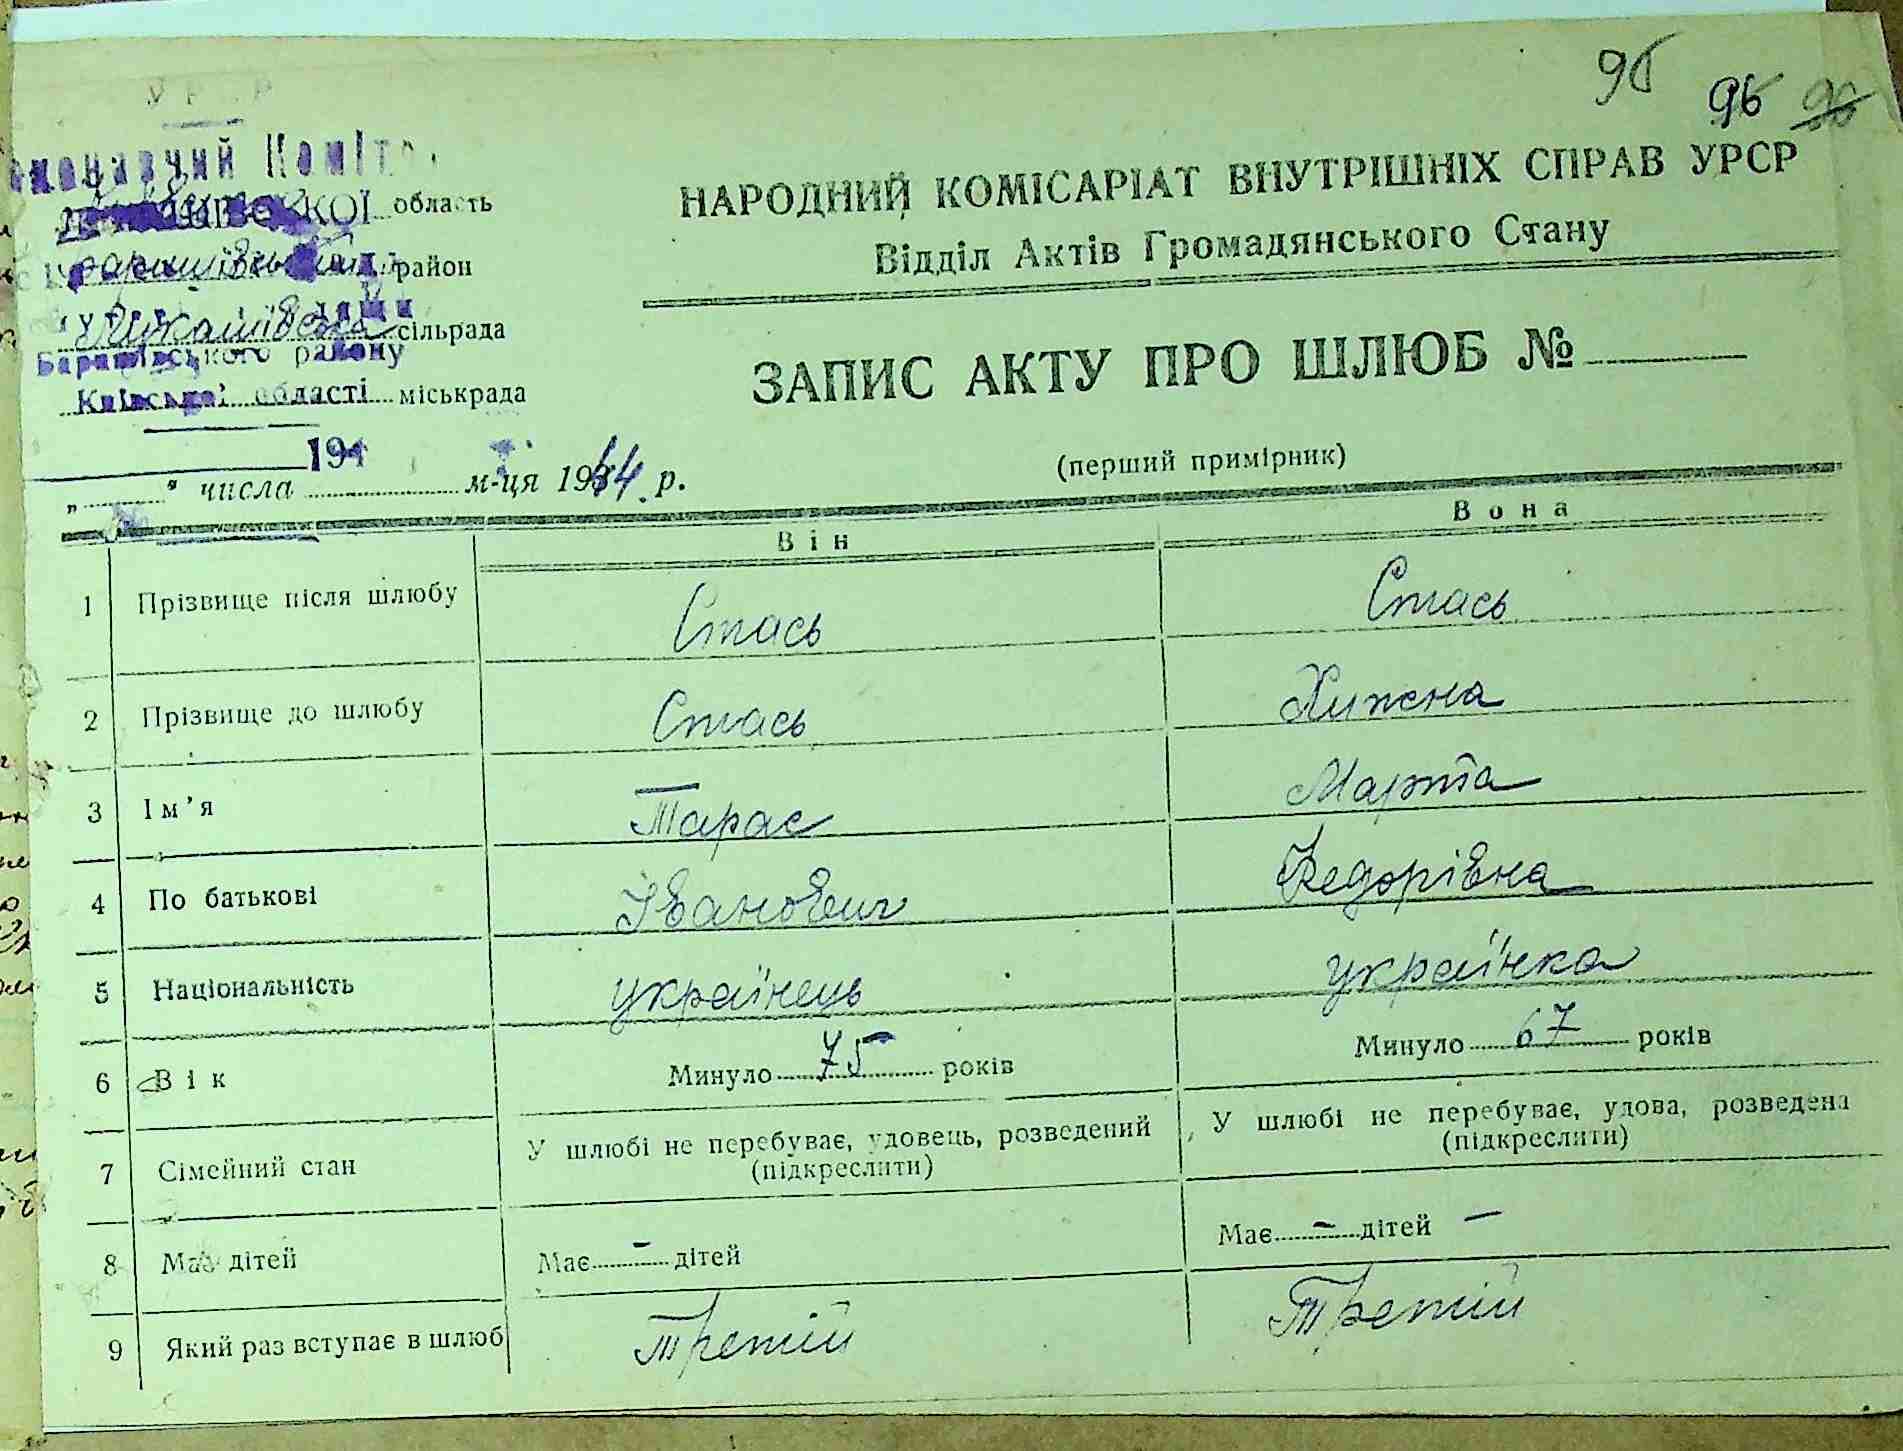 96 96 90
УРСР
Виконавчий Коміте
КОЇ область
район
Лукашівська сільрада
Баришівського району
Київської області міськрада
194
" " числа м-ця 1944 р.
НАРОДНИЙ КОМІСАРІАТ ВНУТРІШНІХ СПРАВ УРСР
Відділ Актів Громадянського Стану
ЗАПИС АКТУ ПРО ШЛЮБ №
(перший примірник)
Він Вона
1 Прізвище після шлюбу Стась Стась
2 Прізвище до шлюбу Стась Хижна
3 Ім'я Тарас Марта
4 По батькові Іванович Федорівна
5 Національність українець українка
6 Вік Минуло 75 років Минуло 67 років
7 Сімейний стан У шлюбі не перебуває, удовець, розведений (підкреслити) У шлюбі не перебуває, удова, розведена (підкреслити)
8 Має дітей Має - дітей Має - дітей —
9 Який раз вступає в шлюб Третій Третій